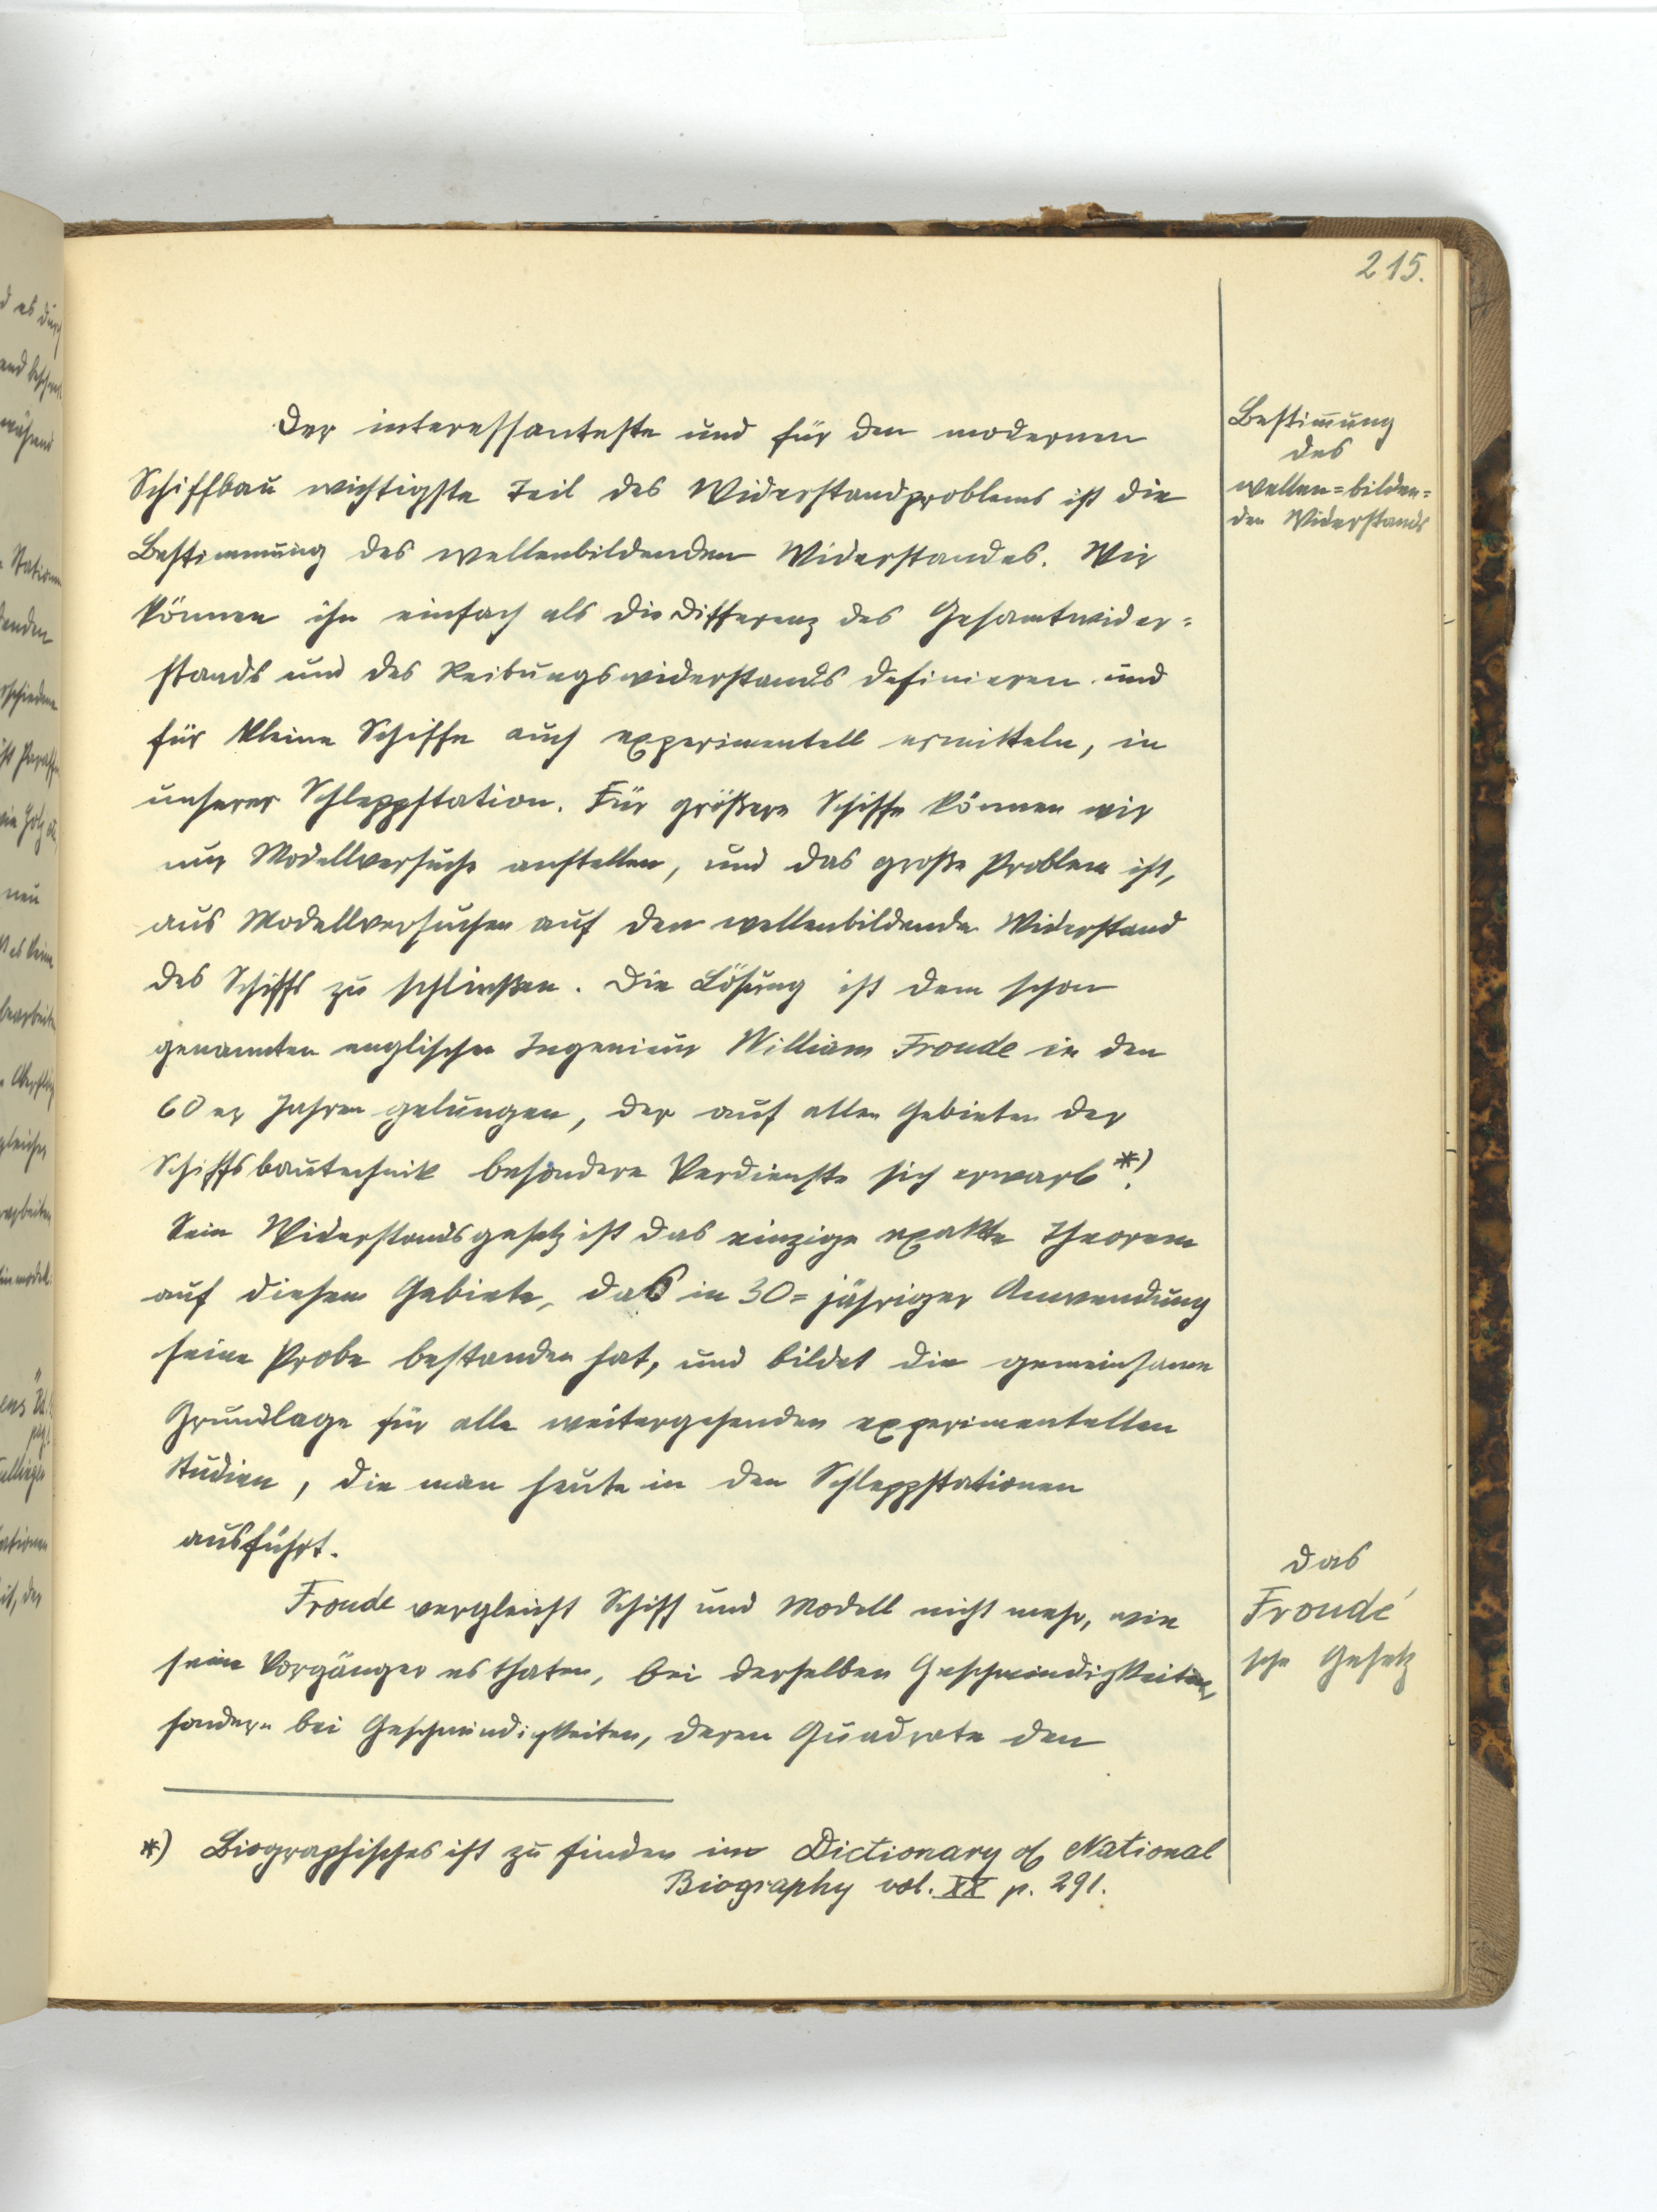 215.
Der interessanteste und für den modernen
Schiffbau wichtigste Teil des Widerstandproblems ist die
Bestimmung des wellenbildenden Widerstandes. Wir
können ihn einfach als die Differenz des Gesamtwider=
stands und des Reibungswiderstands definieren und
für kleine Schiffe auch experimentell ermitteln, in
unserer Schleppstation. Für größere Schiffe können wir
nur Modellversuche anstellen, und das große Problem ist,
aus Modellversuchen auf den wellenbildenden Widerstand
des Schiffs zu schließen. Die Lösung ist dem schon
genannten englischen Ingenieur William Froude in den
60er Jahren gelungen, der auf allen Gebieten der
Schiffsbautechnik besondere Verdienste sich erwarb *).
Sein Widerstandsgesetz ist das einzige exakte Theorem
auf diesem Gebiete, das in 30=jähriger Anwendung
seine Probe bestanden hat, und bildet die gemeinsame
Grundlage für alle weitergehenden experimentellen
Studien, die man heute in den Schleppstationen
ausführt.
Froude vergleicht Schiff und Modell nicht mehr, wie
seine Vorgänger es thaten, bei derselben Geschwindigkeiten,
sondern bei Geschwindigkeiten, deren Quadrate den
*) Biographisches ist zu finden im Dictionary of National
Biography vol. XX p. 291.
Bestim̅ung
des
wellen=bilden=
den Widerstands
Das
Froude'
sche Gesetz